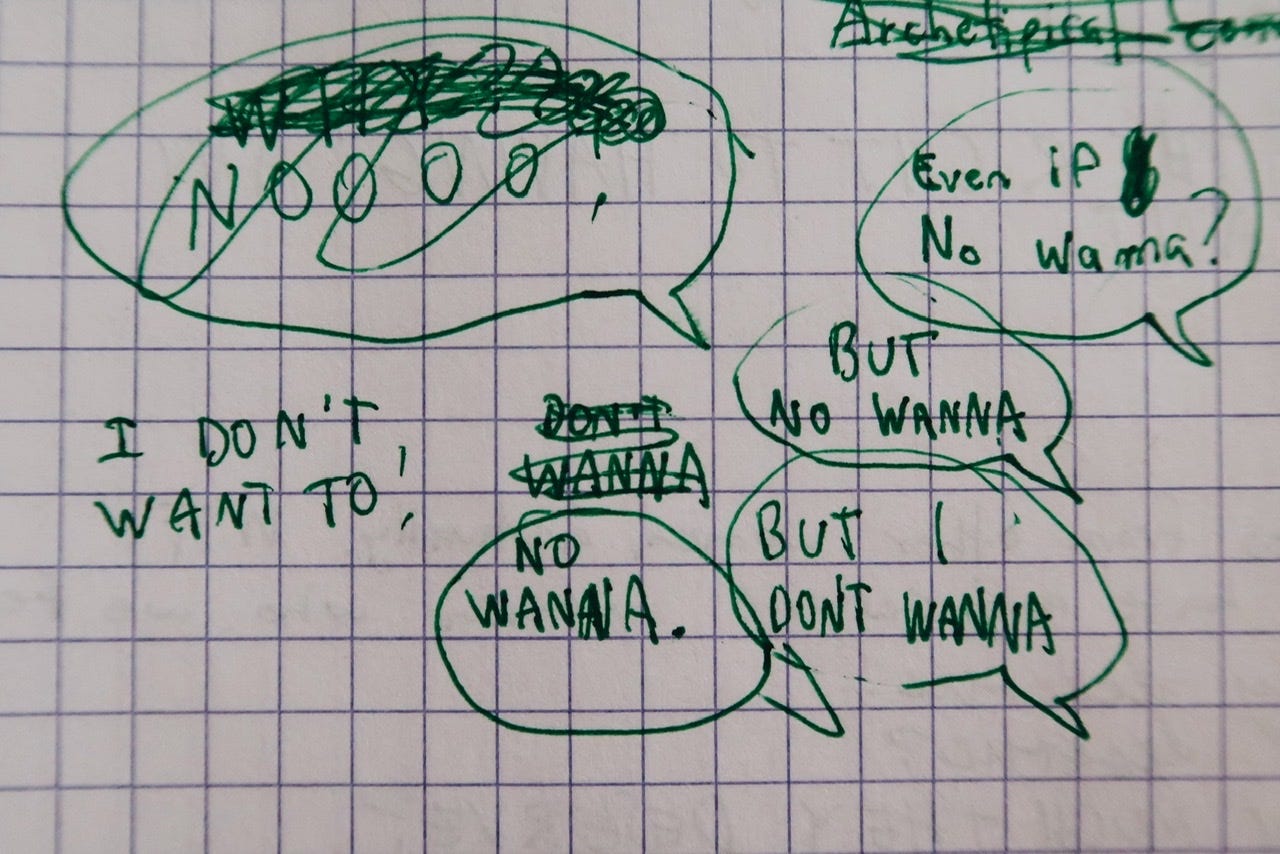 Archetipical
NOOOO,
Even iP
No Wanna?
BUT
NO WANNA
I DON'T
WANT TO!
DON'T
WANNA
NO
WANNA.
BUT I
DONT WANNA